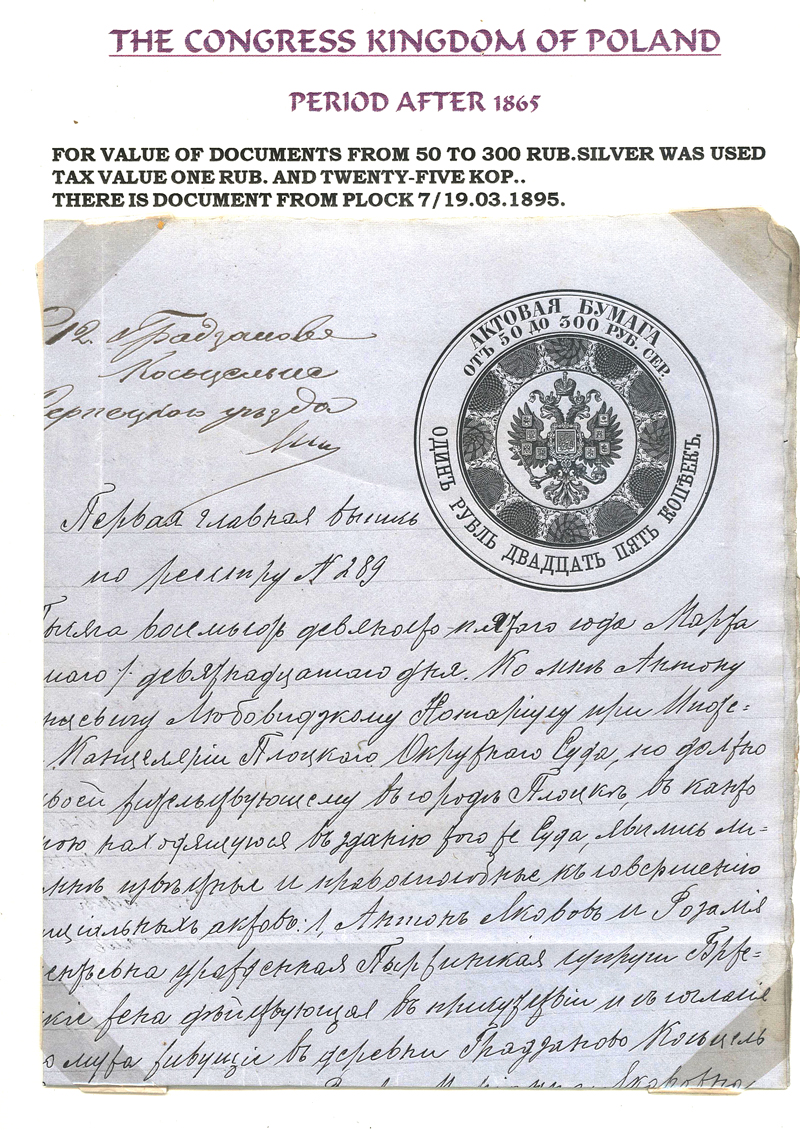 THE CONGRESS KINGDOM OF POLAND
PERIOD AFTER 1865
FOR VALUE OF DOCUMENTS FROM 50 TO 300 RUB.SILVER WAS USED
TAX VALUE ONE RUB. AND TWENTY-FIVE KOP..
THERE IS DOCUMENT FROM PLOCK 7/19.03.1895.
АКТОВАЯ БУМАГА
ОТЪ 50 ДО 300 РУБ. СЕР.
ОДИНЪ РУБЛЬ ДВАДЦАТЬ ПЯТЬ КОПѢЕКЪ.
уѣзда
Первая главная выпись
по реестру № 289
восемьсотъ девяносто пятаго года Марта
девятнадцатаго дня. Ко мнѣ Антону
Любовидзкому Нотаріусу при
Канцеляріи Плоцкаго Окружнаго Суда, по
жительствующему въ городѣ Плоцкѣ, въ
находящуюся въ зданію того же Суда, явились ли-
извѣстные и правоспособные къ совершенію
актовъ: 1, Антонъ Яковъ и Розалія
урожденная супруги
жена дѣйствующая въ присутствіи и съ согласія
мужа живущіе въ деревни Градзаново Косцельне
Яковъ